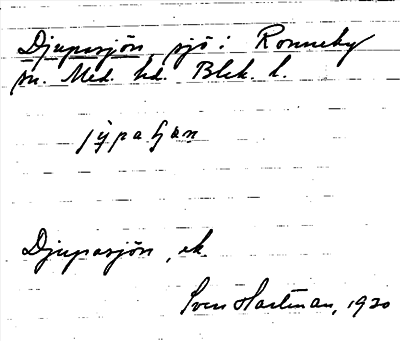 Djupasjön, sjö i Ronneby
sn. Med. hd. Blek. l.
jỳpaʃan
Djupasjön, ek.
Sven Hartman, 1920